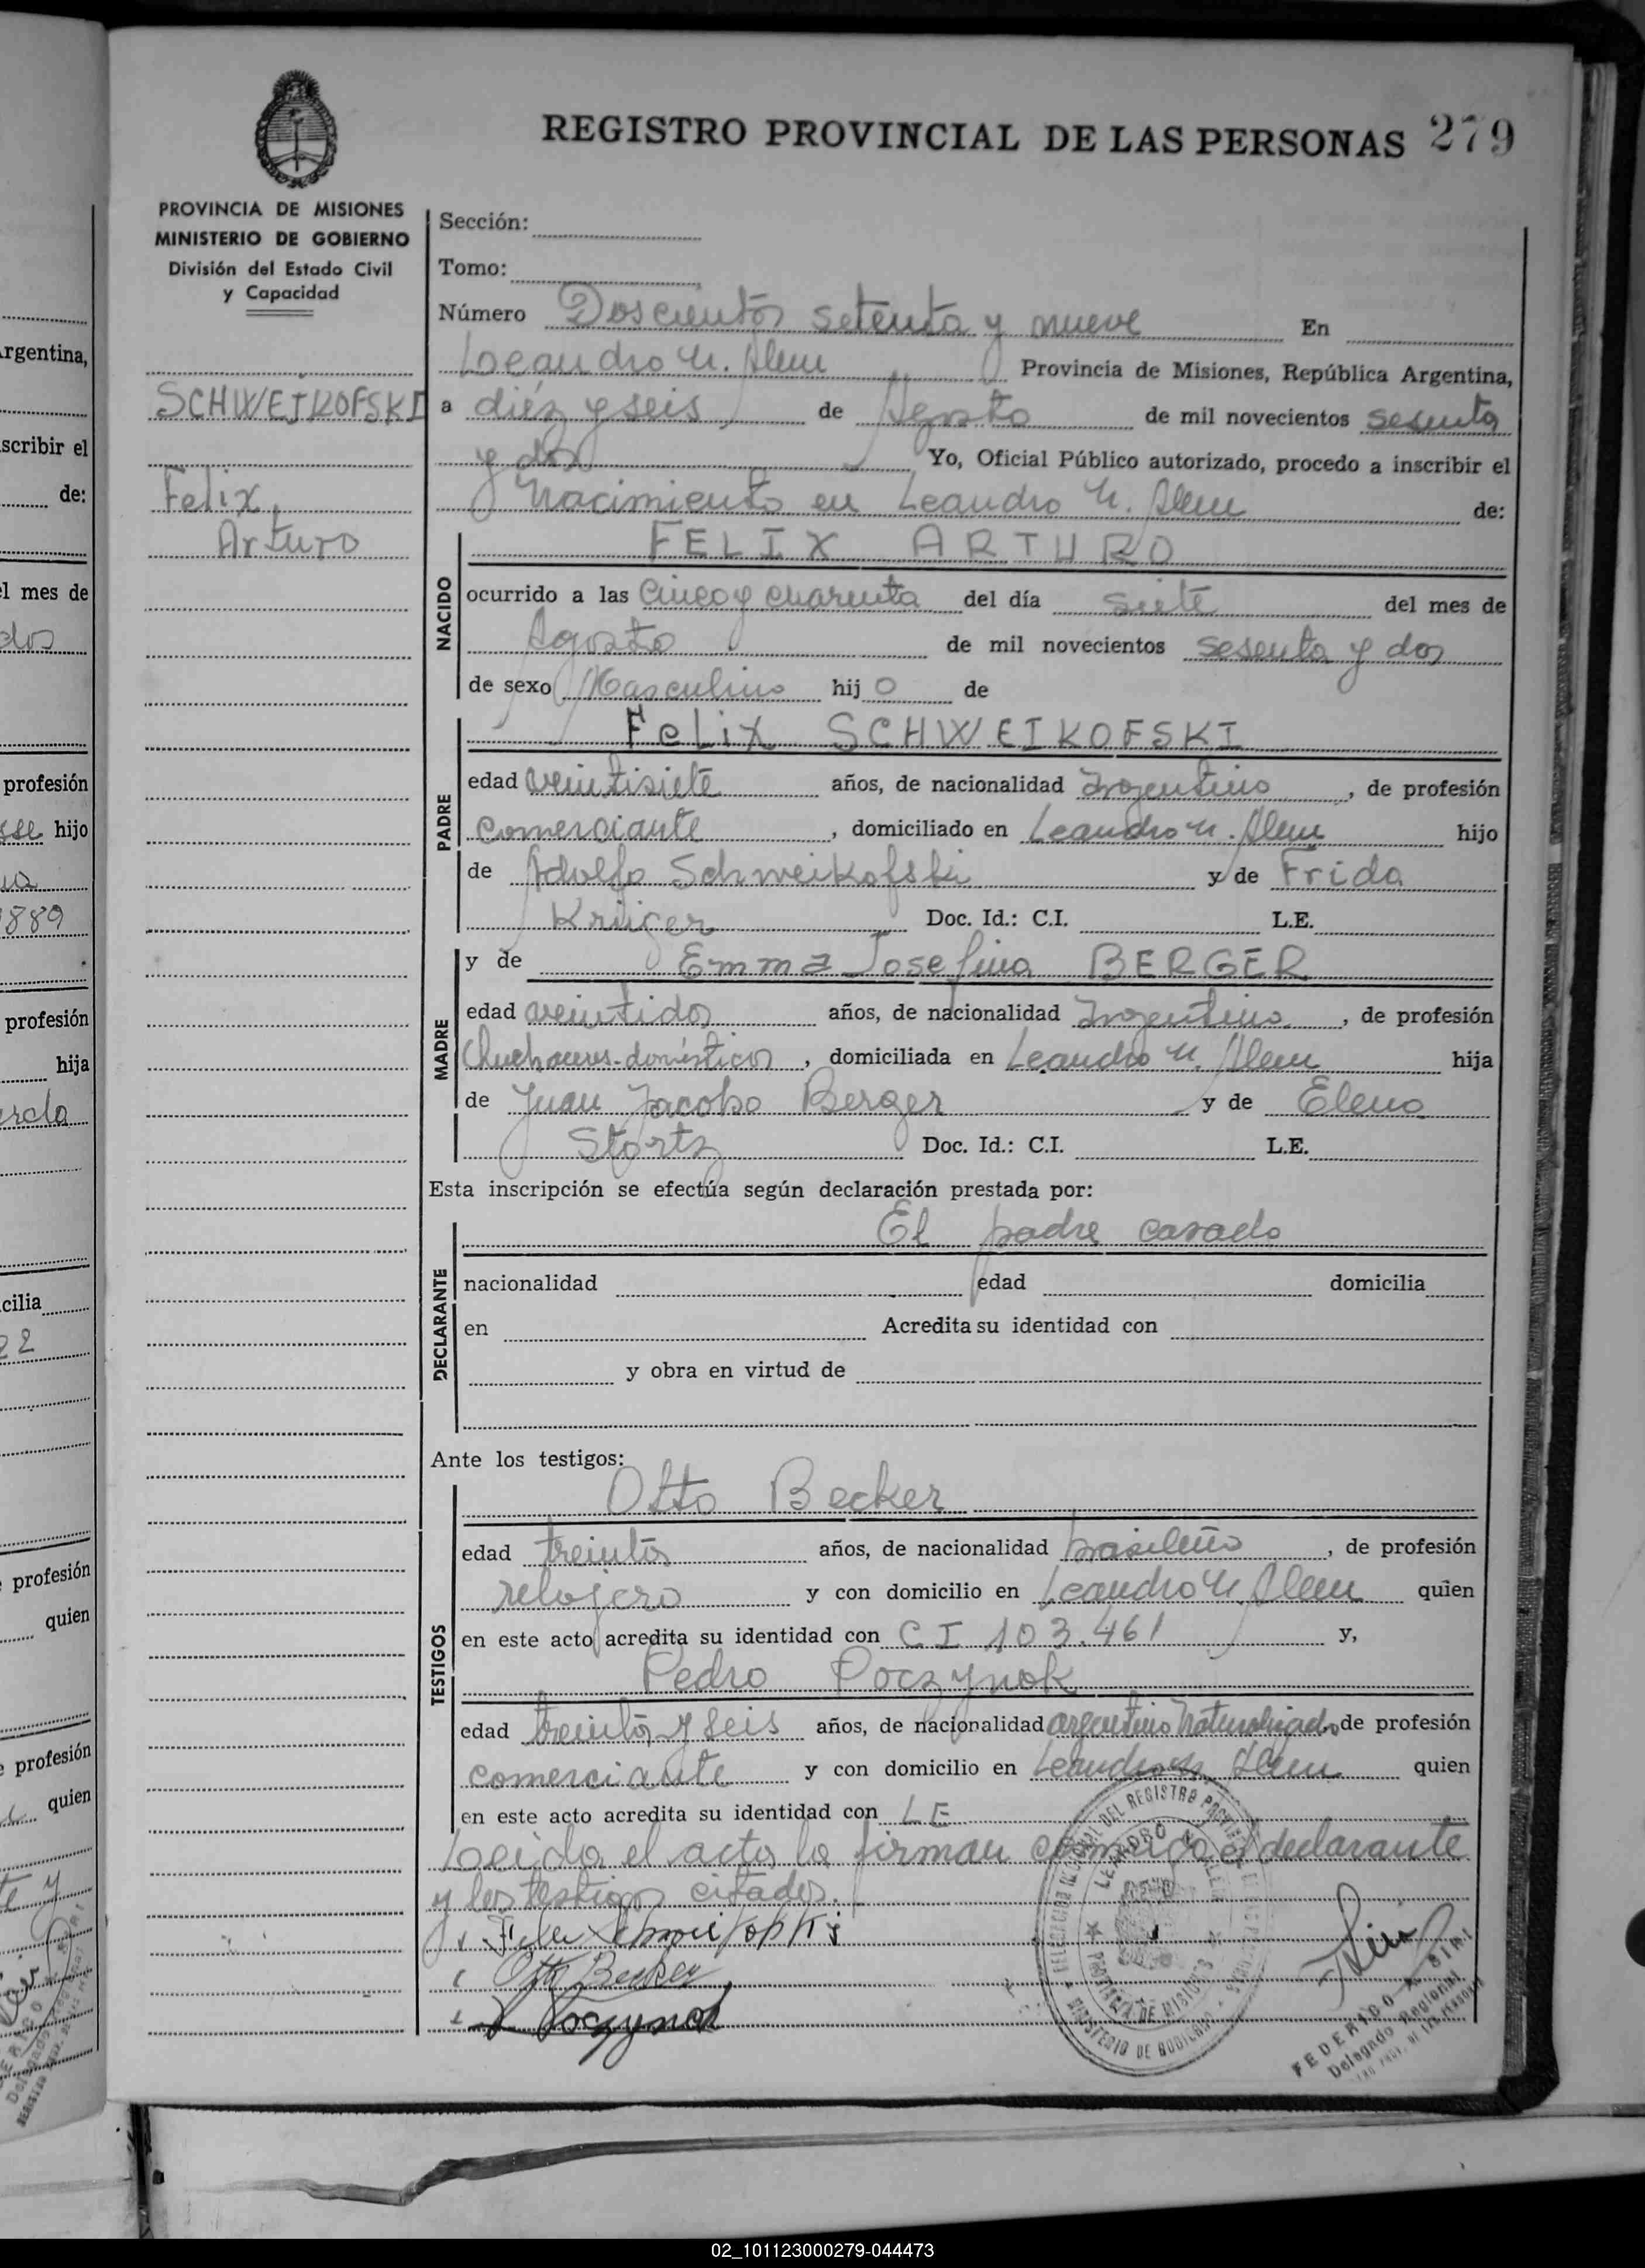 REGISTRO PROVINCIAL DE LAS PERSONAS 279
PROVINCIA DE MISIONES
MINISTERIO DE GOBIERNO
División del Estado Civil
y Capacidad
SCHWEIKOFSKI
Felix,
Arturo
Sección:
Tomo:
Número Doscientos setenta y nueve En
Leandro N. Alem Provincia de Misiones, República Argentina,
a diéz y seis de Agosto de mil novecientos sesenta
y dos Yo, Oficial Público autorizado, procedo a inscribir el
Nacimiento en Leandro N. Alem de:
NACIDO
FELIX ARTURO
ocurrido a las Cinco y cuarenta del día siete del mes de
Agosto de mil novecientos sesenta y dos
de sexo Masculino hijo de
PADRE
Felix SCHWEIKOFSKI
edad veintisiete años, de nacionalidad Argentino, de profesión
comerciante, domiciliado en Leandro N. Alem hijo
de Adolfo Schweikofski y de Frida
Krüger Doc. Id.: C.I. L.E.
MADRE
y de Emma Josefina BERGER
edad veintidos años, de nacionalidad Argentina, de profesión
Quehaceres-domésticos, domiciliada en Leandro N. Alem hija
de Juan Jacobo Berger y de Elena
Stortz Doc. Id.: C.I. L.E.
Esta inscripción se efectúa según declaración prestada por:
DECLARANTE
El padre casado
nacionalidad edad domicilia
en Acredita su identidad con
y obra en virtud de
Ante los testigos:
TESTIGOS
Otto Becker
edad treinta años, de nacionalidad brasileño, de profesión
relojero y con domicilio en Leandro N. Alem quien
en este acto acredita su identidad con CI 103.461 y,
Pedro Poczynok
edad treinta y seis años, de nacionalidad argentino Naturalizado de profesión
comerciante y con domicilio en Leandro N. Alem quien
en este acto acredita su identidad con LE
Leida el acta la firman conmigo el declarante
y los testigos citados.
Otto Becker
Poczynok
LEANDRO N. ALEM
PROVINCIA DE MISIONES
MINISTERIO DE GOBIERNO
FEDERICO
Delegado Regional
rgentina,
scribir el
de:
l mes de
dos
profesión
hijo
889
profesión
hija
cilia
22
profesión
quien
profesión
quien
02_101123000279-044473